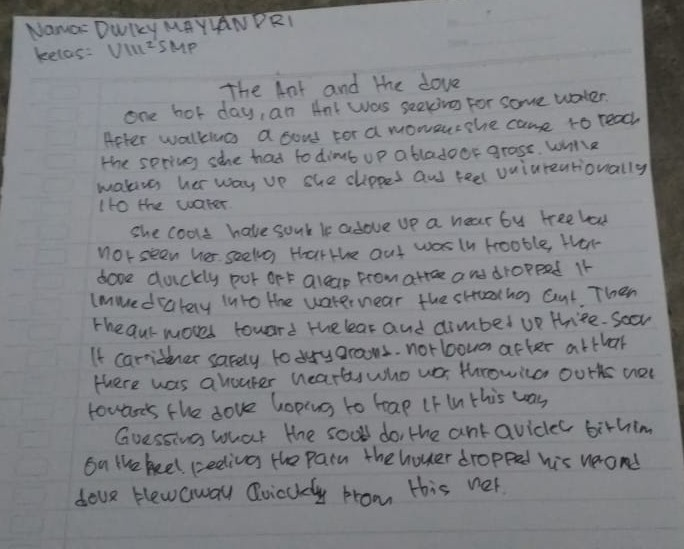 Nama= DWIKY MAYLANDRI
kelas= VIII² SMP
The Ant and the dove
one hot day, an Ant was seeking for some water.
After walking a for a she came to reach
the spring she had to climb up a blade of grass. while
making her way up she slipped and feel unintentionally
ito the water.
she could have sunk if a dove up a near by tree had
not seen her seeing that the ant was in trooble, that
dove quickly put off a leap from a tree and dropped it
immediately into the water near the ant. Then
the ant moved toward the leaf and climbed up there. soon
it carried her safely to dry ground. not after at that
there was a hounter nearby who was out his net
towards the dove hoping to trap it in this way
Guessing what the do, the ant bit him
on the heel. feeling the pain the dropped his net and
dove flew away Quickly from this net.